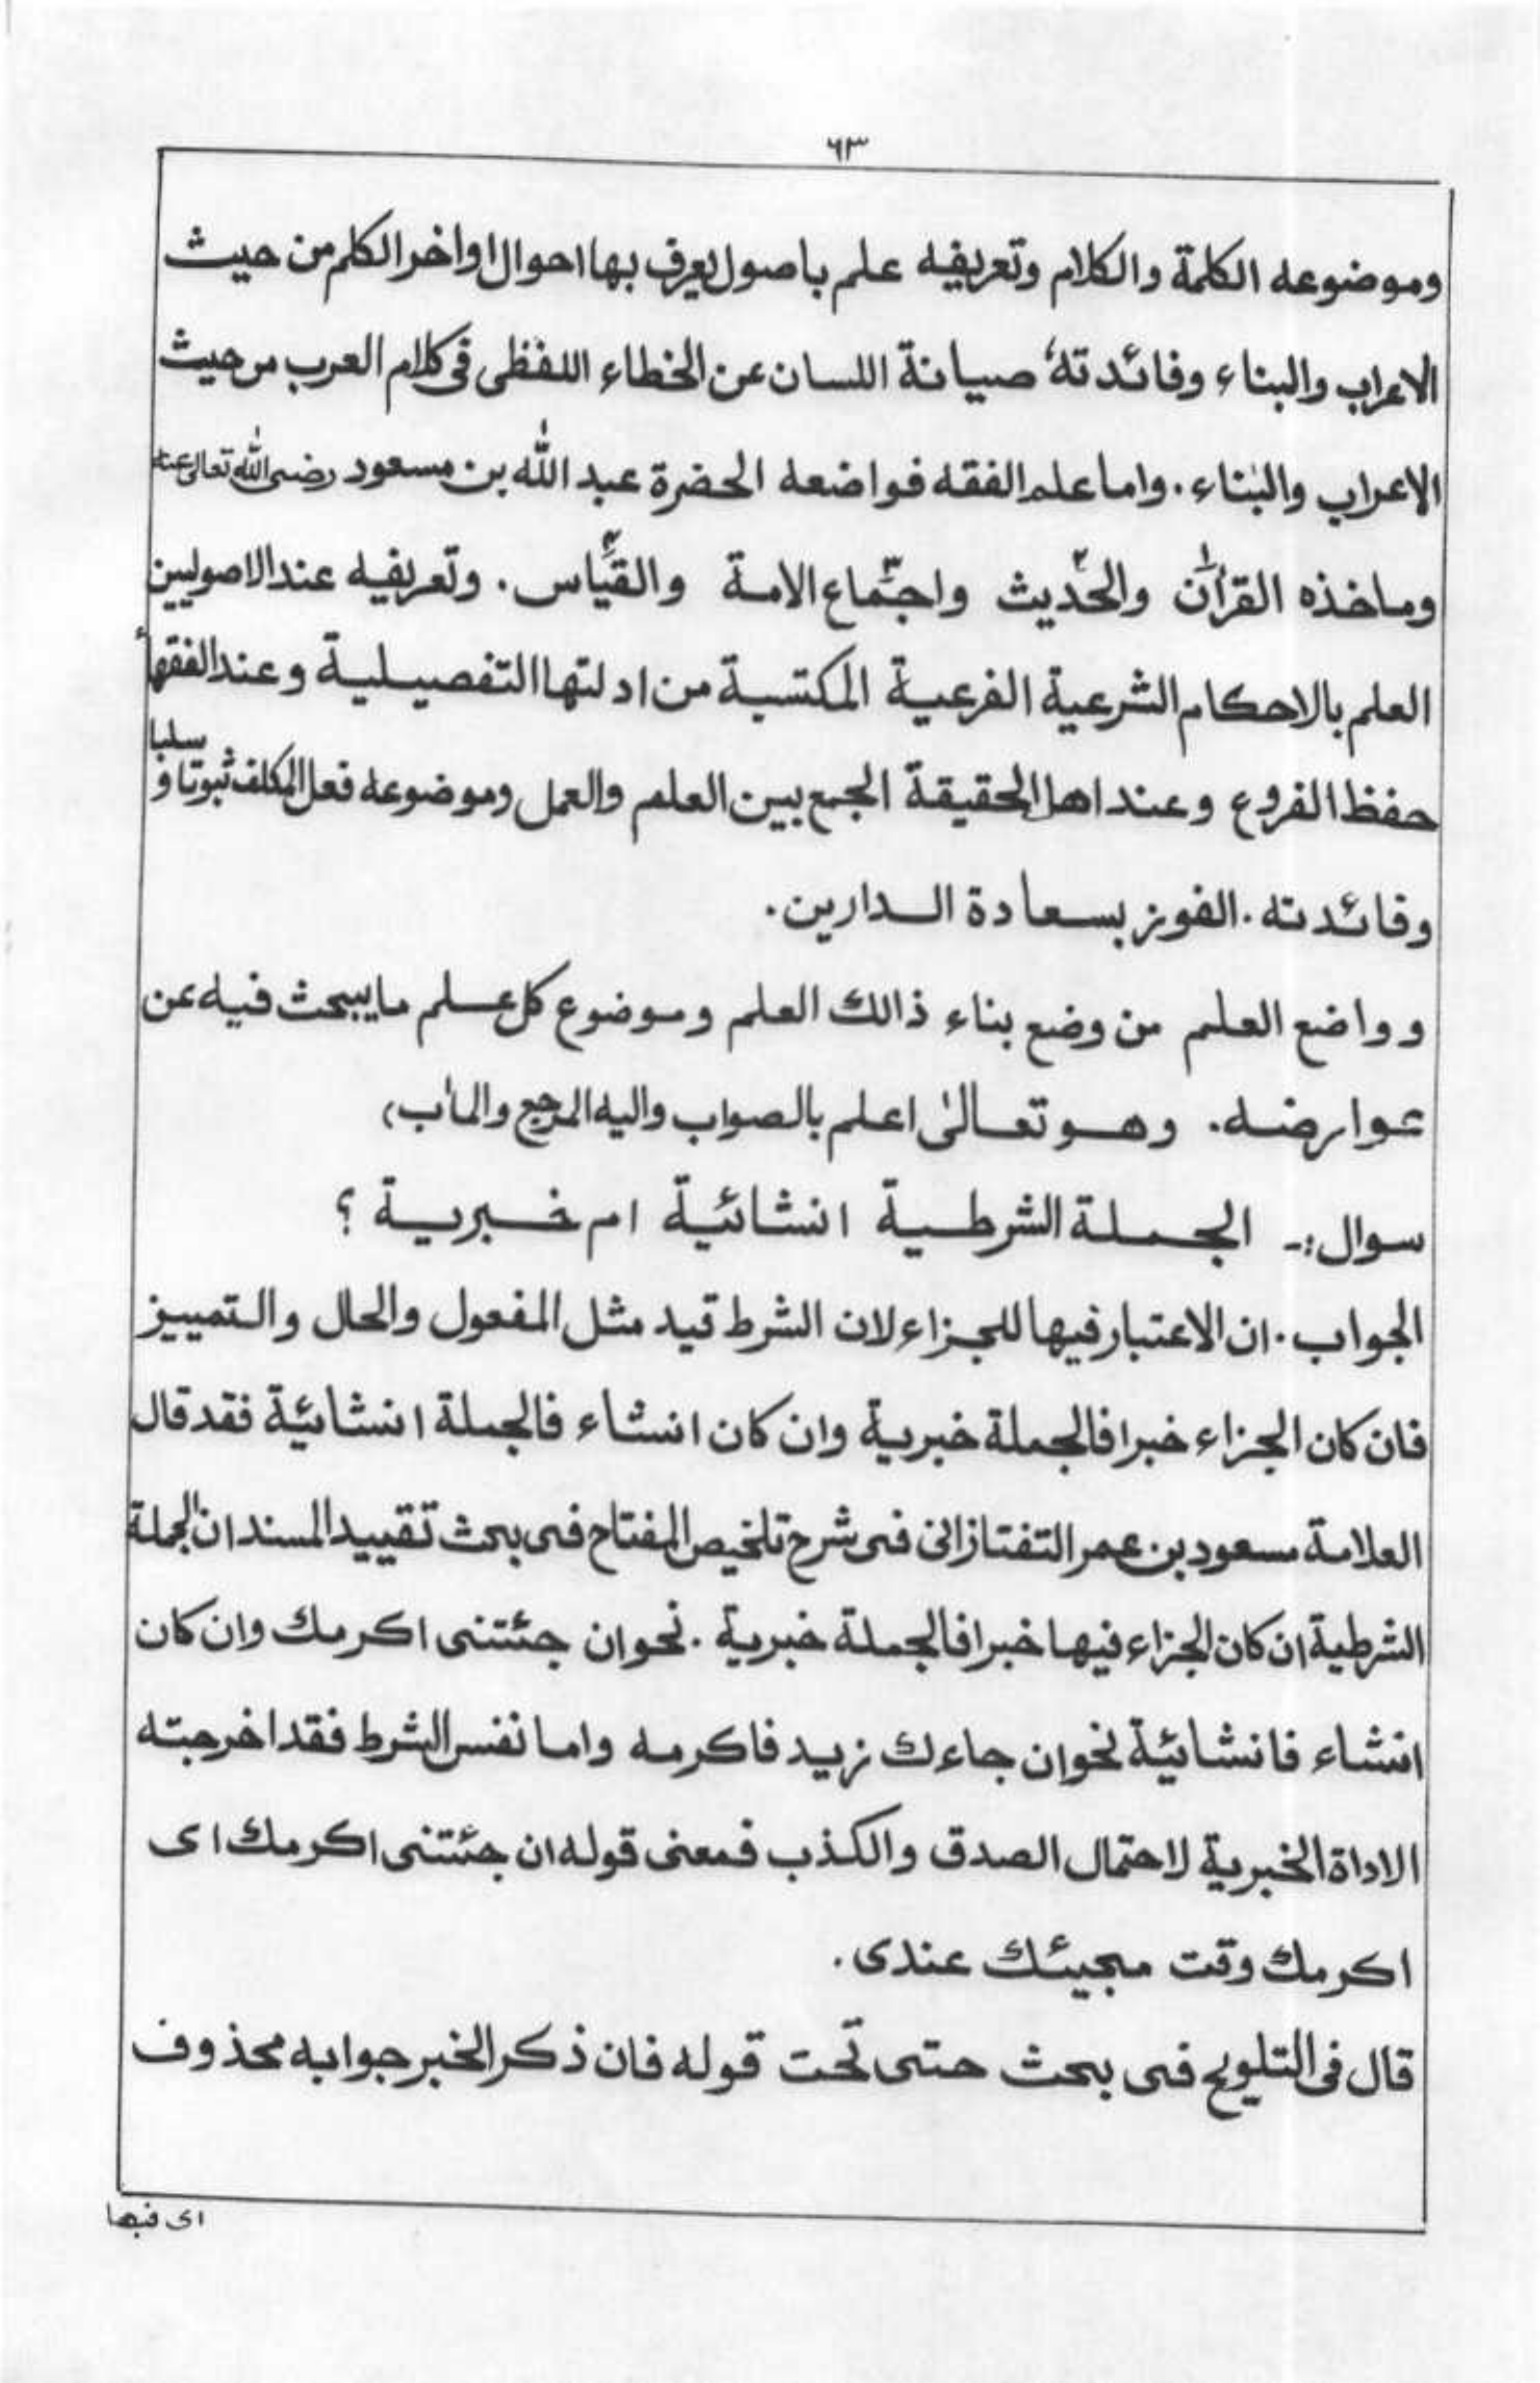 ٦٣
وموضوعه الكلمة والكلام وتعريفه علم باصول يعرف بها احوال اواخر الكلم من حيث
الاعراب والبناء وفائدته صيانة اللسان عن الخطاء اللفظى فى كلام العرب من حيث
الاعراب والبناء . واما علم الفقه فواضعه الحضرة عبد الله بن مسعود رضى الله تعالى عنه
وماخذه القرآن والحديث واجماع الامة والقياس . وتعريفه عند الاصوليين
العلم بالاحكام الشرعية الفرعية المكتسبة من ادلتها التفصيلية وعند الفقهاء
حفظ الفروع وعند اهل الحقيقة الجمع بين العلم والعمل وموضوعه فعل المكلف ثبوتا و سلبا
وفائدته . الفوز بسعادة الدارين .
وواضع العلم من وضع بناء ذالك العلم وموضوع كل علم مايبحث فيه عن
عوارضه . وهو تعالىٰ اعلم بالصواب واليه المرجع والماٰب،
سوال :- الجملة الشرطية انشائية ام خبرية ؟
الجواب . ان الاعتبار فيها للجزاء لان الشرط قيد مثل المفعول والحال والتمييز
فان كان الجزاء خبرا فالجملة خبرية وان كان انشاء فالجملة انشائية فقد قال
العلامة مسعود بن عمر التفتازانى فى شرح تلخيص المفتاح فى بحث تقييد المسند ان الجملة
الشرطية ان كان الجزاء فيها خبرا فالجملة خبرية . نحو ان جئتنى اكرمك وان كان
انشاء فانشائية نحو ان جاءك زيد فاكرمه واما نفس الشرط فقد اخرجته
الاداة الخبرية لاحتمال الصدق والكذب فمعنى قوله ان جئتنى اكرمك اى
اكرمك وقت مجيئك عندى .
قال فى التلويح فى بحث حتى تحت قوله فان ذكر الخبر جوابه محذوف
اى فبها